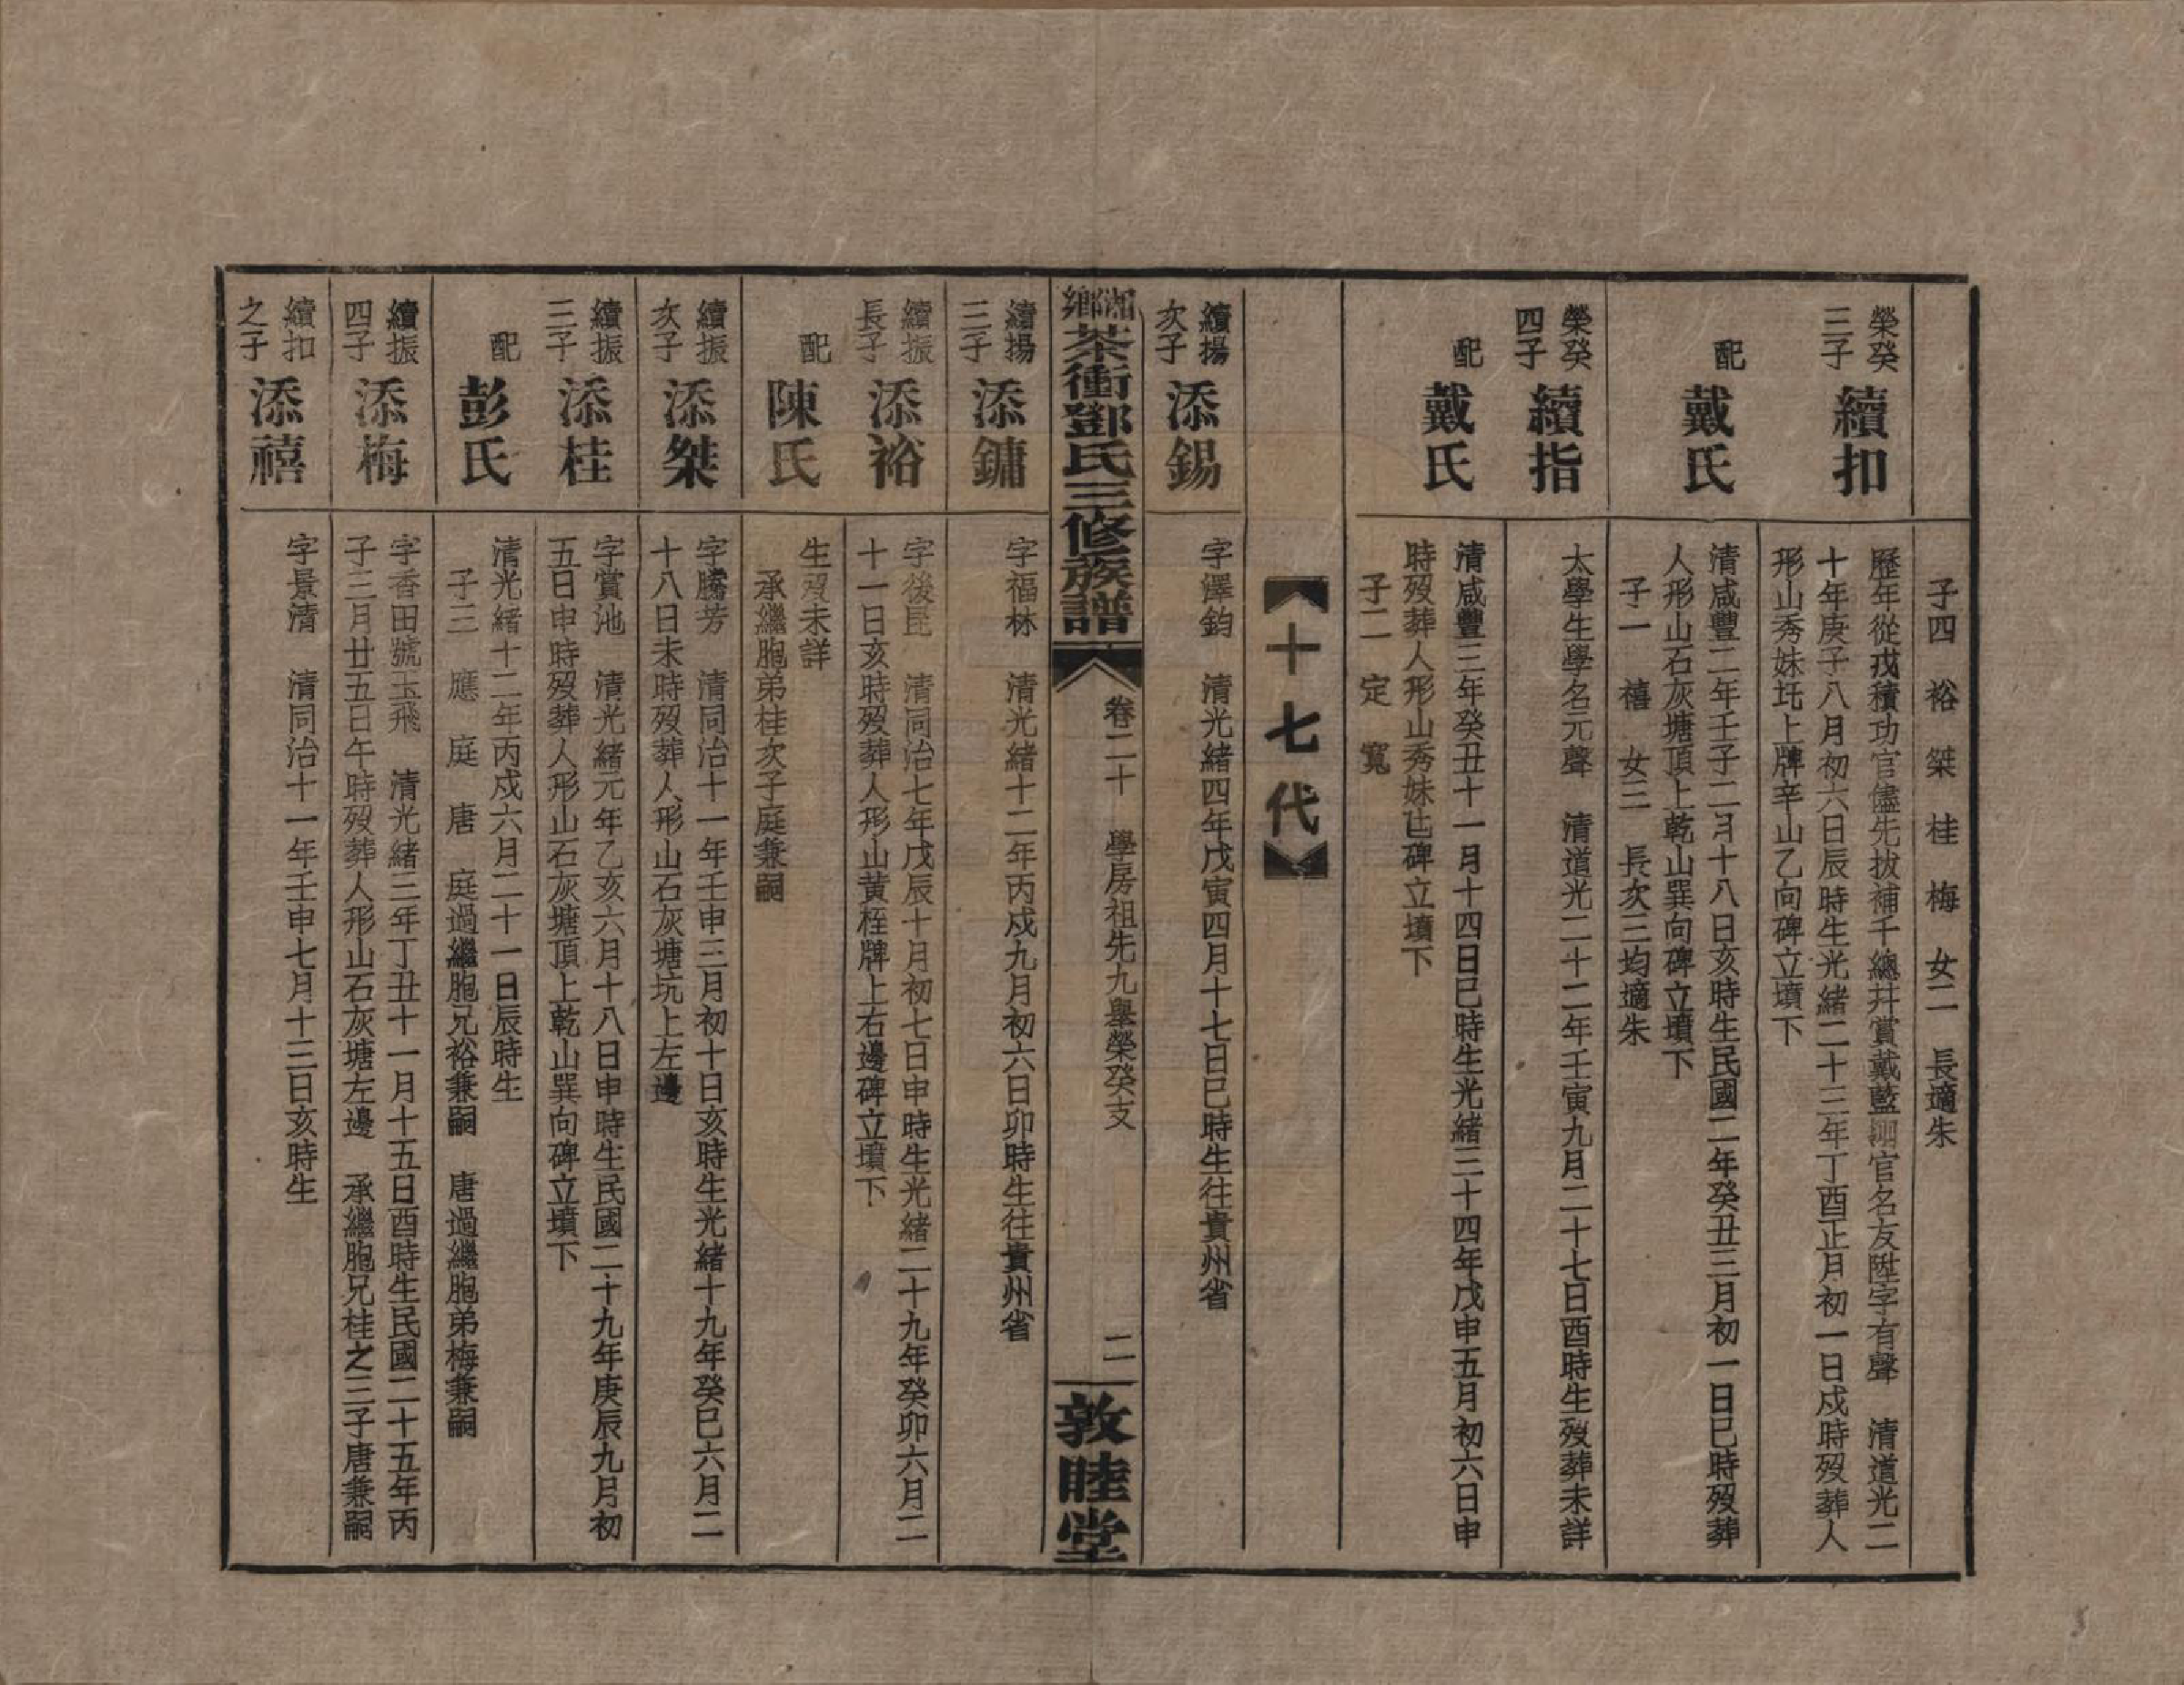 子四　裕　桀　桂　梅　女二　長適朱
榮癸三子　續扣　歷年從戎積功官儘先拔補千總幷賞戴藍翎官名友陞字有聲　清道光二
十年庚子八月初六日辰時生光緒二十三年丁酉正月初一日戍時歿葬人
形山秀妹坵上牌辛山乙向碑立墳下
配　戴氏　清咸豐二年壬子二月十八日亥時生民國二年癸丑三月初一日巳時歿葬
人形山石灰塘頂上乾山巽向碑立墳下
子一　禧　女三　長次三均適朱
榮癸四子　續指　太學生學名元聲　清道光二十二年壬寅九月二十七日酉時生歿葬未詳
配　戴氏　清咸豐三年癸丑十一月十四日巳時生光緒三十四年戊申五月初六日申
時歿葬人形山秀妹坵碑立墳下
子二　定　寬
十七代
續揚次子　添錫　字繹鈞　清光緒四年戊寅四月十七日巳時生往貴州省
湘鄉茶衝鄧氏三修族譜　卷二十　學房祖先九舉榮癸支　二　敦睦堂
續揚三子　添鏞　字福林　清光緒十二年丙戍九月初六日卯時生往貴州省
續振長子　添裕　字後昆　清同治七年戊辰十月初七日申時生光緒二十九年癸卯六月二
十一日亥時歿葬人形山黃桎牌上右邊碑立墳下
配　陳氏　生歿未詳
承繼胞弟桂次子庭兼嗣
續振次子　添桀　字騰芳　清同治十一年壬申三月初十日亥時生光緒十九年癸巳六月二
十八日未時歿葬人形山石灰塘坑上左邊
續振三子　添桂　字賞池　清光緒元年乙亥六月十八日申時生民國二十九年庚辰九月初
五日申時歿葬人形山石灰塘頂上乾山巽向碑立墳下
配　彭氏　清光緒十二年丙戍六月二十一日辰時生
子三　應　庭　唐　庭過繼胞兄裕兼嗣　唐過繼胞弟梅兼嗣
續振四子　添梅　字香田號玉飛　清光緒三年丁丑十一月十五日酉時生民國二十五年丙
子三月廿五日午時歿葬人形山石灰塘左邊　承繼胞兄桂之三子唐兼嗣
續扣之子　添禧　字景清　清同治十一年壬申七月十三日亥時生